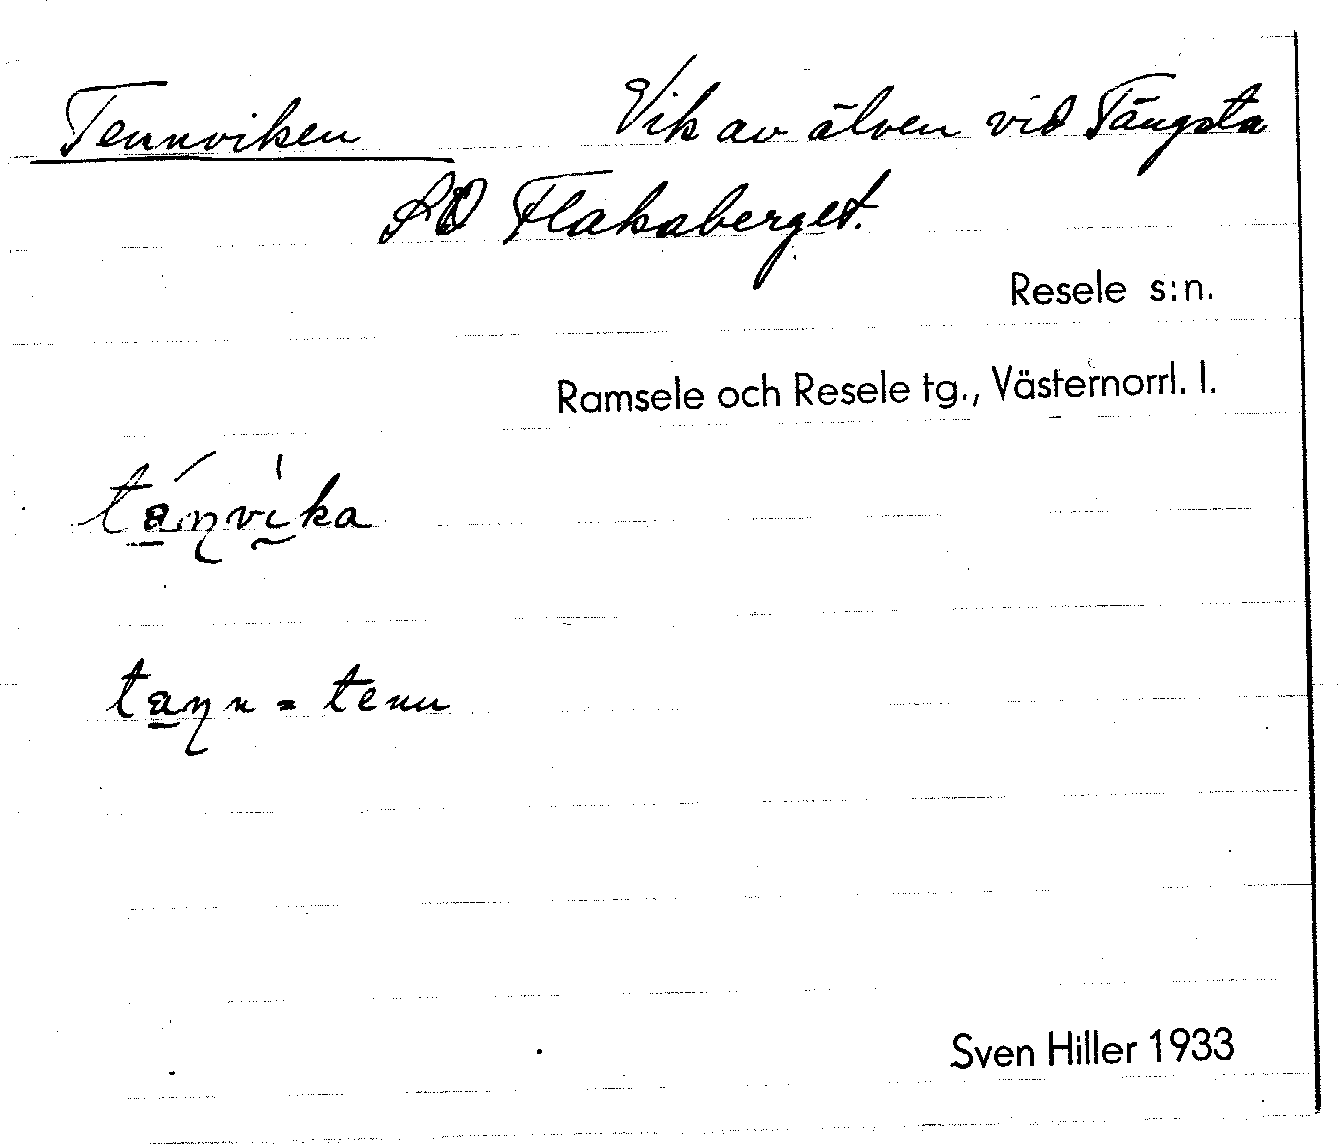 Tennviken Vik av älven vid Tängsta
SO Flakaberget.
Resele s:n.
Ramsele och Resele tg., Västernorrl. l.
tanvika
tann = tenn
Sven Hiller 1933